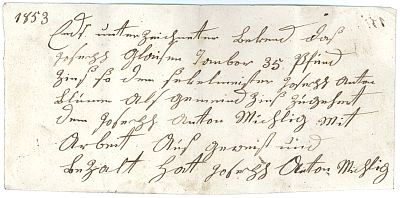 1853
Ends unterzeichneter bekend das
Joseph Gloisen Tambor 35 Pfund
Zins so dem sekelmeister Joseph Anton
als gemeind Zins zugehert
dem Joseph Anton Michlig mit
Arbeit Aus geweist und
bezalt hat Joseph Anton Michlig